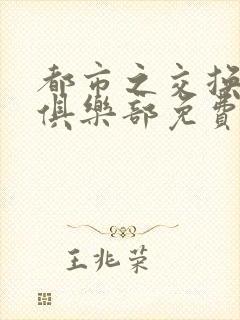 都市之交换
俱樂部免費
王兆荣